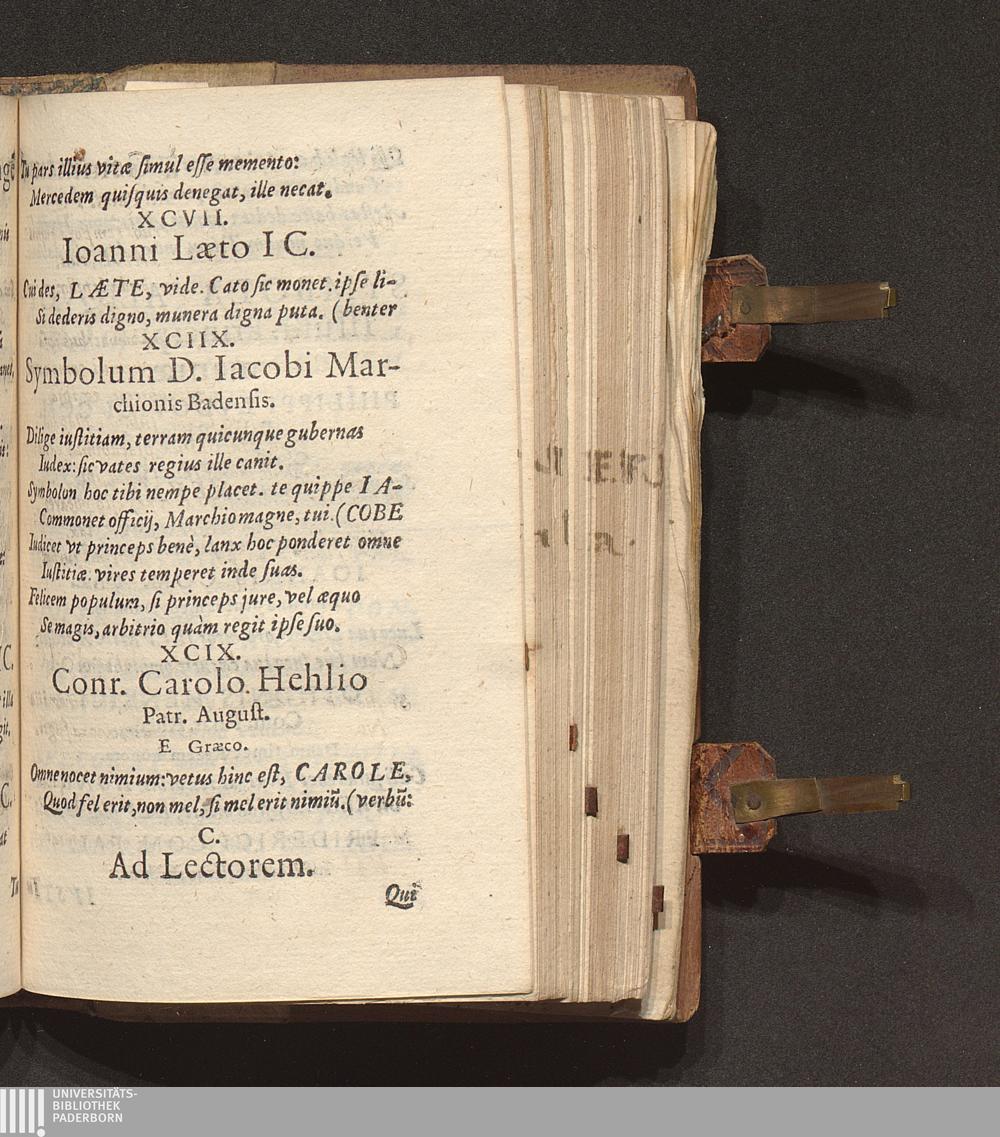 Tu pars illius vitæ ſimul eſſe memento:
Mercedem quiſquis denegat, ille necat.
XCVII.
Ioanni Læto I C.
Cui des, LÆTE, vide. Cato ſic monet. ipſe li-
Si dederis digno, munera digna puta. (benter
XCIIX.
Symbolum D. Iacobi Mar-
chionis Badenſis.
Dilige iuſtitiam, terram quicunque gubernas
Iudex: ſic vates regius ille canit.
Symbolon hoc tibi nempe placet. te quippe I A-
Commonet officij, Marchio magne, tui. (COBE
Iudicet vt princeps benè, lanx hoc ponderet omne
Iuſtitiæ. vires temperet inde ſuas.
Felicem populum, ſi princeps jure, vel æquo
Se magis, arbitrio quàm regit ipſe ſuo.
XCIX.
Conr. Carolo. Hehlio
Patr. Auguſt.
E Græco.
Omne nocet nimium: vetus hinc eſt, CAROLE,
Quod fel erit, non mel, ſi mel erit nimiũ. (verbũ:
C.
Ad Lectorem.
Qui
UNIVERSITÄTS-
BIBLIOTHEK
PADERBORN